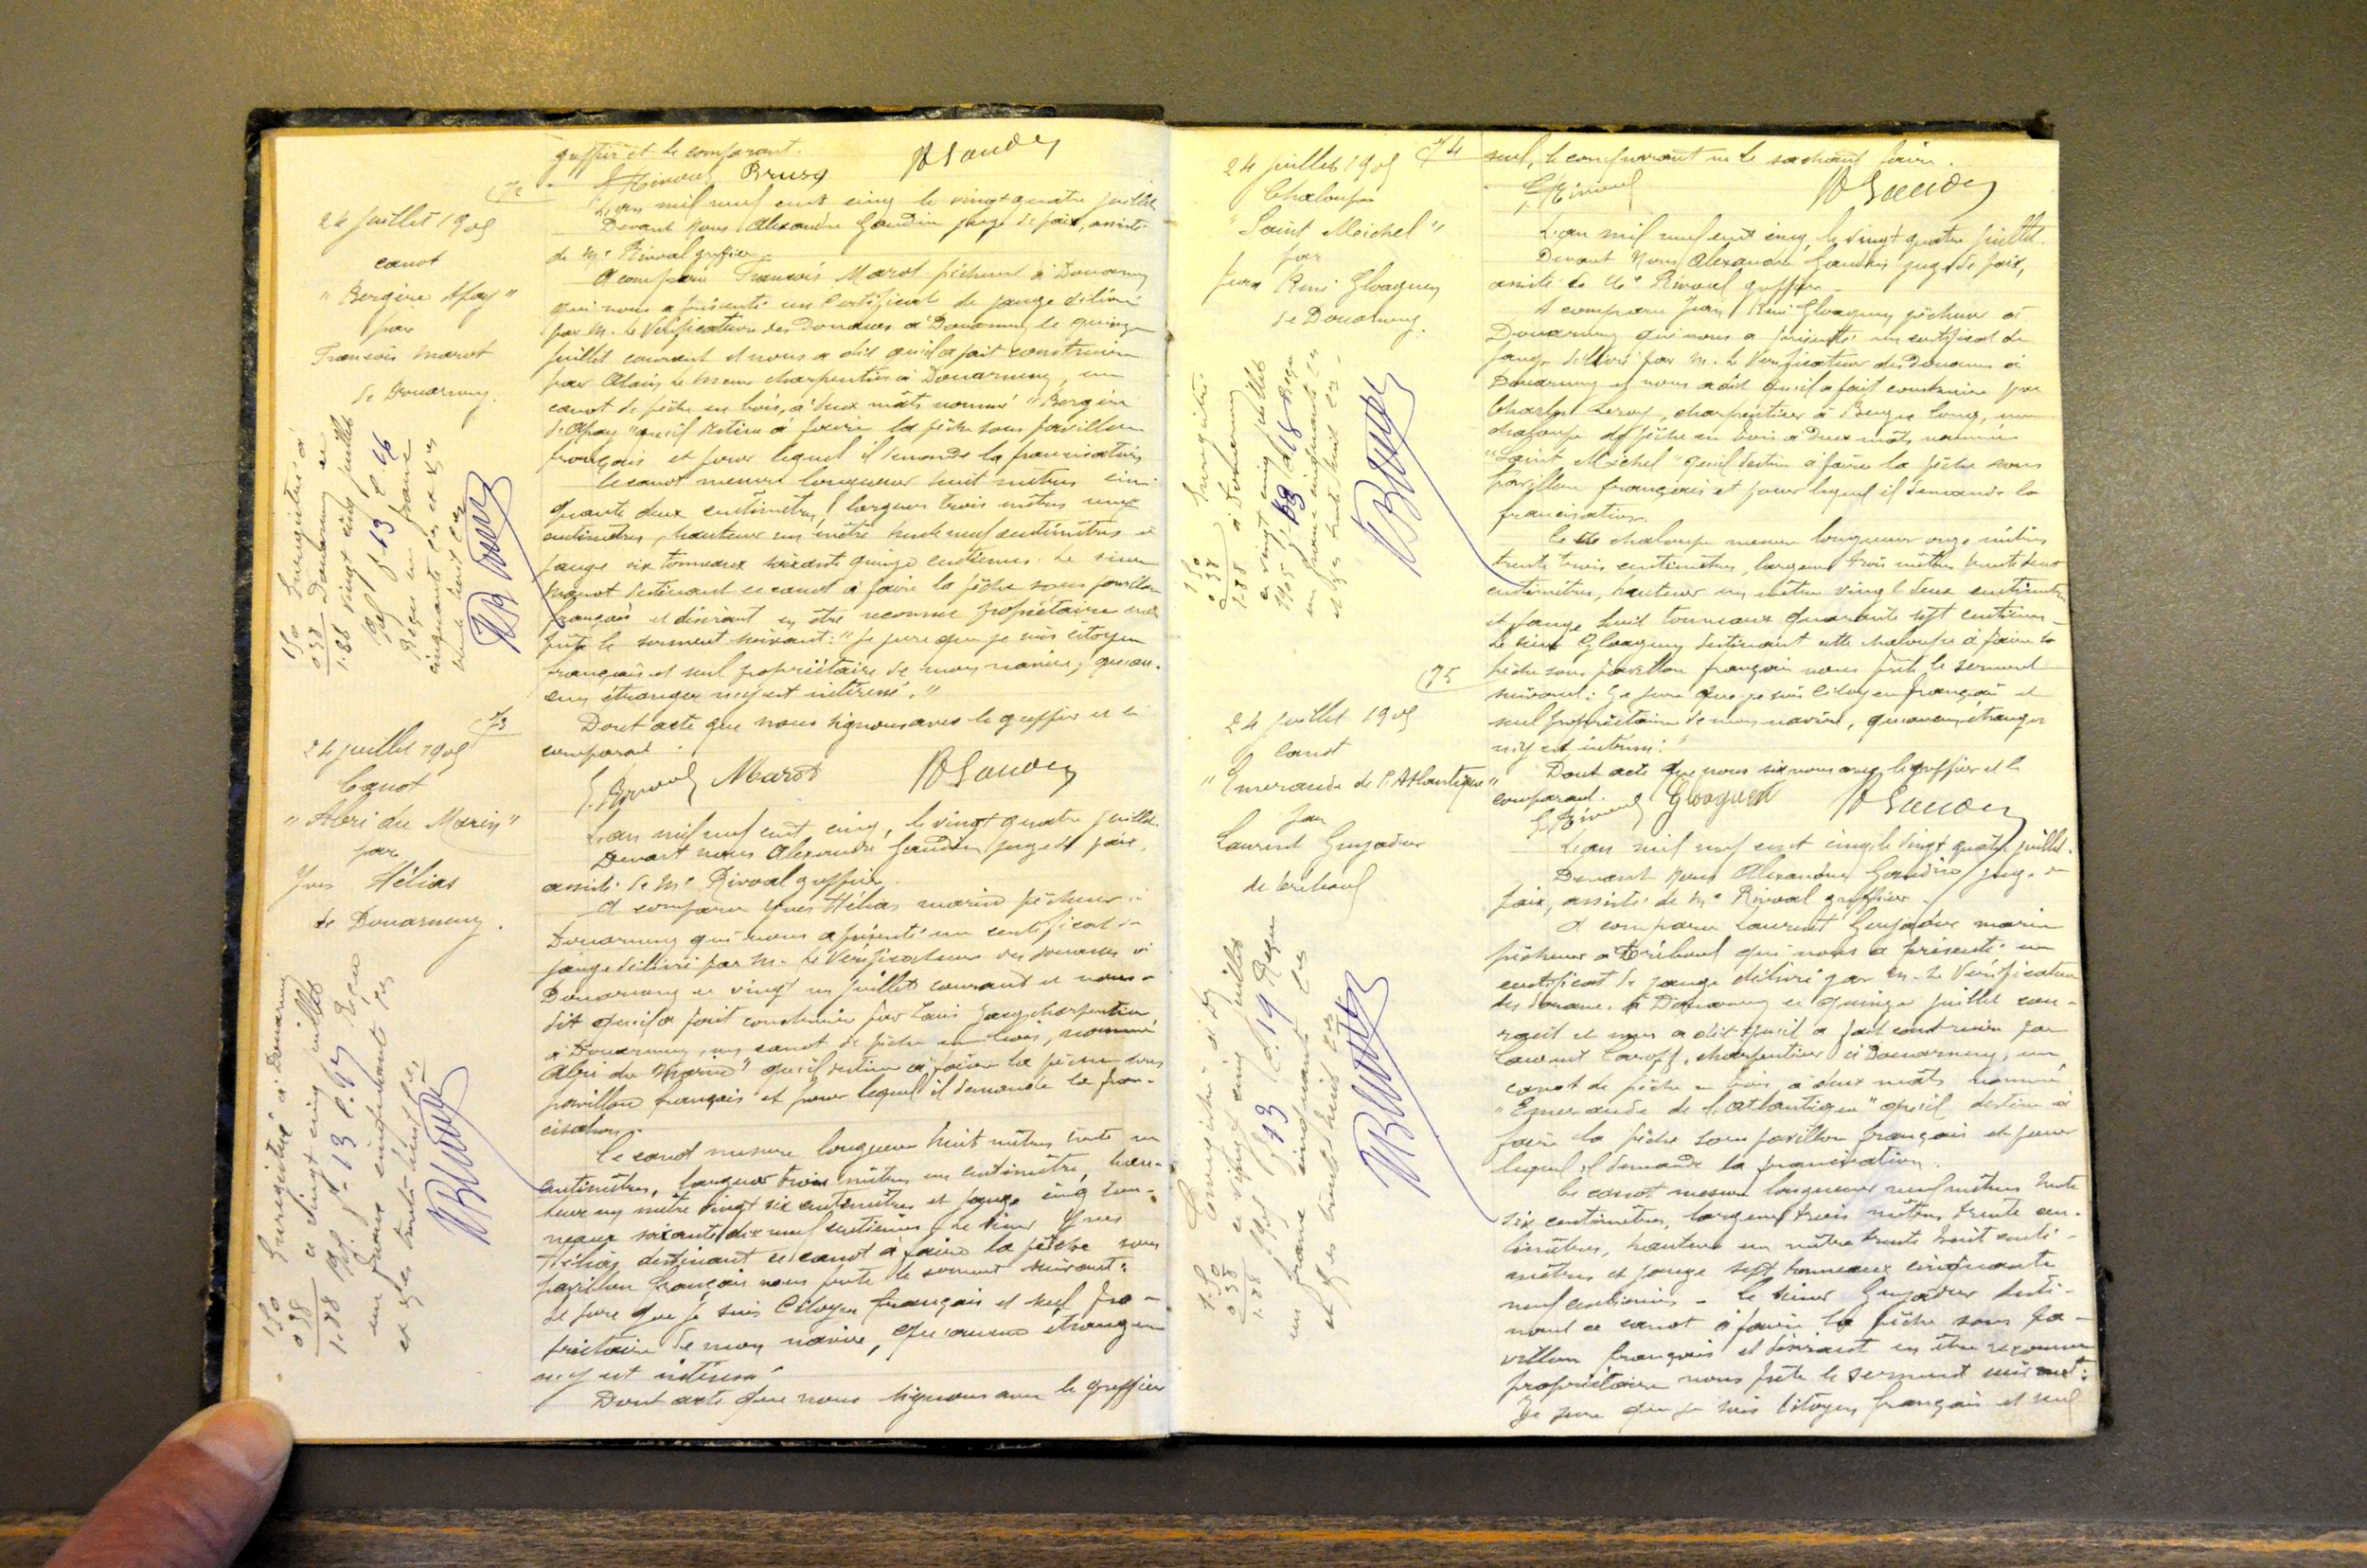 greffier et le comparant.
Rivoal Brusq AGaudin
72
24 juillet 1905
canot
"Bergère Spay"
par
François Marot
de Douarnenez.
Enregistré à
Douarnenez ce
vingt cinq juillet
1905 f° 13 C. 
Reçu un franc
cinquante ces et xes
trente huit ces
1.50
0.38
1.88
L'an mil neuf cent cinq le vingt quatre juillet
Devant Nous Alexandre Gaudin juge de paix, assisté
de Me Rivoal greffier
A comparu François Marot pêcheur à Douarnenez
qui nous a présenté un Certificat de jauge délivré
par M. le Vérificateur des Douanes à Douarnenez le quinze
juillet courant et nous a dit qu'il a fait construire
par Alain le charpentier à Douarnenez, un
canot de pêche en bois, à deux mâts nommé "Bergère
de" qu'il destine à faire la pêche sous pavillon
français et pour lequel il demande la francisation
Ce canot mesure longueur huit mètres cin-
quante deux centimètres, largeur trois mètres
centimètres, hauteur un mètre trente neuf centimètres et
jauge six tonneaux soixante quinze centièmes. Le sieur
Marot destinant ce canot à faire la pêche sous pavillon
français et désirant en être reconnu propriétaire nous
prête le serment suivant: "Je jure que je suis citoyen
français et seul propriétaire de mon navire, qu'au-
cun étranger n'y est intéressé."
Dont acte que nous signons avec le greffier et le
comparant.
E. Rivoal Marot AGaudin
73
24 juillet 1905
Canot
"Abri du Marin"
par
Yves Hélias
de Douarnenez.
Enregistré à Douarnenez
ce vingt cinq juillet
1905 f° 13 C. Reçu
un franc cinquante ces
et xes trente-huit ces
1.50
0.38
1.88
L'an mil neuf cent cinq, le vingt quatre juillet.
Devant nous Alexandre Gaudin juge de paix,
assisté de Me Rivoal greffier.
A comparu Yves Hélias marin pêcheur à
Douarnenez qui nous a présenté un certificat de
jauge délivré par M. le Vérificateur des douanes à
Douarnenez ce vingt un juillet courant et nous a
dit qu'il a fait construire par Louis charpentier
à Douarnenez, un canot de pêche en bois, nommé
"Abri du Marin" qu'il destine à faire la pêche sous
pavillon français et pour lequel il demande la fran-
cisation.
Ce canot mesure longueur huit mètres trente un
centimètres, largeur trois mètres un centimètre, hau-
teur un mètre vingt six centimètres et jauge cinq ton-
neaux soixante dix neuf centièmes. Le sieur Yves
Hélias destinant ce canot à faire la pêche sous
pavillon français nous prête le serment suivant:
Je jure que je suis Citoyen français et seul pro-
priétaire de mon navire, qu'aucun étranger
n'y est intéressé
Dont acte que nous signons avec le greffier
74
24 juillet 1905
Chaloupe
"Saint Michel"
par
Jean René Gloaguen
de Douarnenez.
Enregistré
à Douarnenez
ce vingt cinq juillet
1905 f° 13 C. 18 Reçu
un franc cinquante ces
et xes trente huit ces
1.50
0.38
1.88
seul, le comparant ne le sachant faire.
E. Rivoal AGaudin
L'an mil neuf cent cinq, le vingt quatre juillet.
Devant Nous Alexandre Gaudin juge de paix,
assisté de Me Rivoal greffier
A comparu Jean René Gloaguen pêcheur à
Douarnenez qui nous a présenté un certificat de
jauge délivré par M. le Vérificateur des Douanes à
Douarnenez et nous a dit qu'il a fait construire par
Charles Leroy, charpentier à, une
chaloupe de pêche en bois à deux mâts nommée
"Saint Michel" qu'il destine à faire la pêche sous
pavillon français et pour lequel il demande la
francisation.
Cette chaloupe mesure longueur onze mètres
trente trois centimètres, largeur trois mètres trente deux
centimètres, hauteur un mètre vingt deux centimètres
et jauge huit tonneaux quarante sept centièmes
Le sieur Gloaguen destinant cette chaloupe à faire la
pêche sous pavillon français nous prête le serment
suivant: Je jure que je suis Citoyen français et
seul propriétaire de mon navire, qu'aucun étranger
n'y est intéressé."
Dont acte que nous signons avec le greffier et le
comparant.
E. Rivoal Gloaguen AGaudin
75
24 juillet 1905
Canot
"Emeraude de l'Atlantique"
par
Laurent Guyader
de Tréboul
Enregistré à Dz
ce vingt cinq juillet
1905 f° 13 C. 19 Reçu
un franc cinquante ces
et xes trente huit ces
1.50
0.38
1.88
L'an mil neuf cent cinq le vingt quatre juillet.
Devant Nous Alexandre Gaudin juge de
paix, assisté de Me Rivoal greffier.
A comparu Laurent Guyader marin
pêcheur à Tréboul qui nous a présenté un
certificat de jauge délivré par M. le Vérificateur
des douanes à Douarnenez ce quinze juillet cou-
rant et nous a dit qu'il a fait construire par
Laurent Caroff, charpentier à Douarnenez, un
canot de pêche en bois, à deux mâts nommé
"Emeraude de l'Atlantique" qu'il destine à
faire la pêche sous pavillon français et pour
lequel il demande la francisation.
Ce canot mesure longueur neuf mètres trente
six centimètres, largeur trois mètres trente cen-
timètres, hauteur un mètre trente huit centi-
mètres et jauge sept tonneaux cinquante
neuf centièmes. Le sieur Guyader desti-
nant ce canot à faire la pêche sous pa-
villon français et désirant en être reconnu
propriétaire nous prête le serment suivant:
Je jure que je suis citoyen français et seul